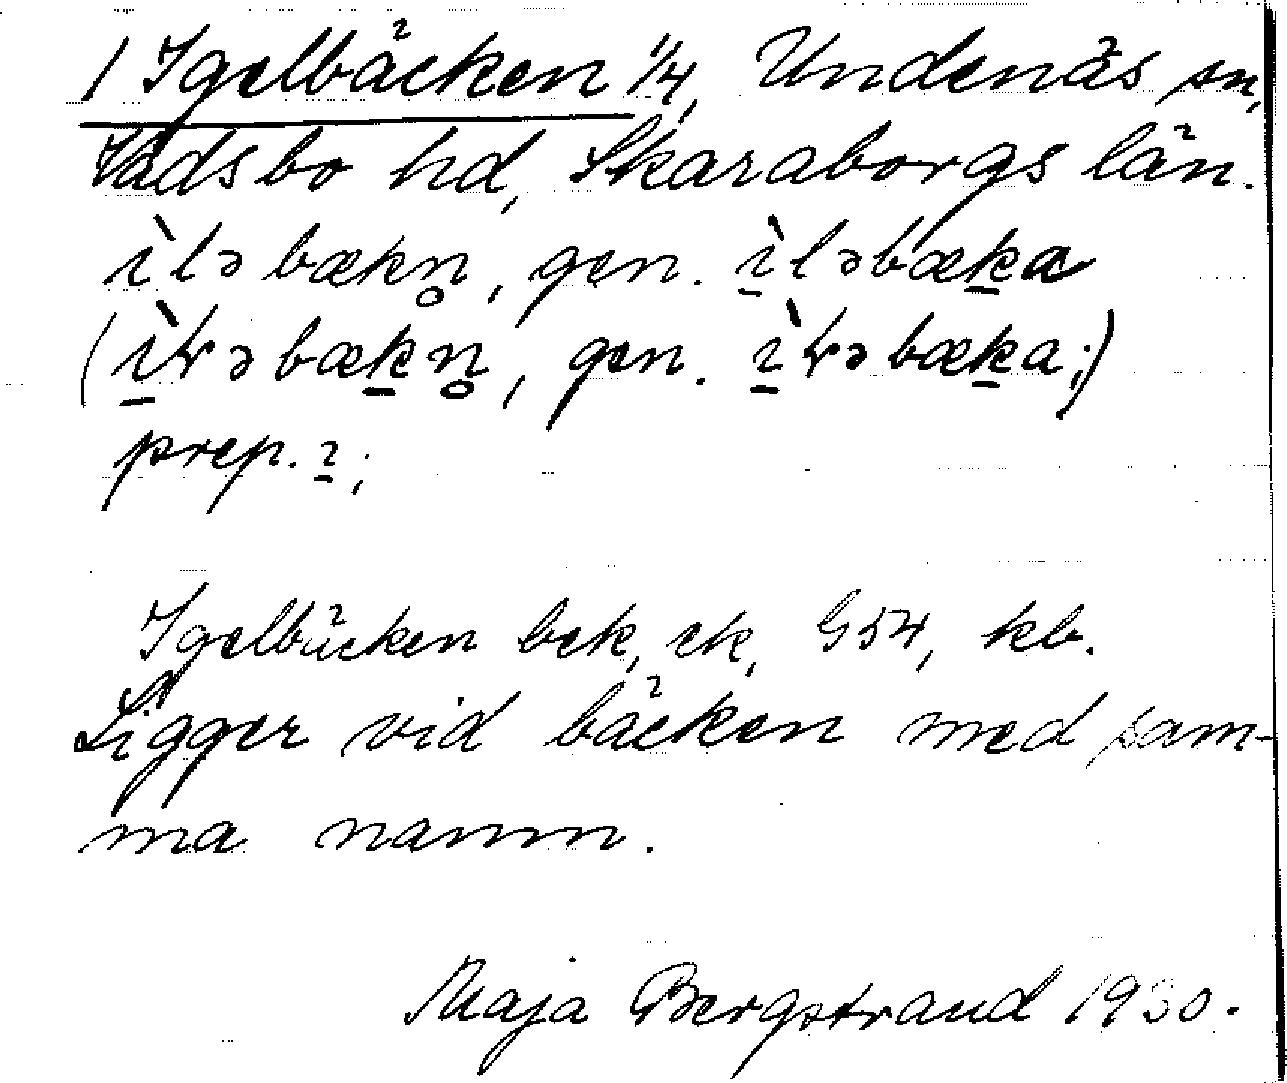 1 Igelbäcken 1/4, Undenäs sn,
Vadsbo hd, Skaraborgs län.
ìləbækn̥, gen. ì̠ləbæk̠a
(ì̠ɽəbæk̠n̥, gen. ì̠ɽəbæk̠a;)
prep. ɪ̠;
Igelbäcken bek, ek, G54, kb.
Ligger vid bäcken med sam-
ma namn.
Maja Bergstrand 1930.